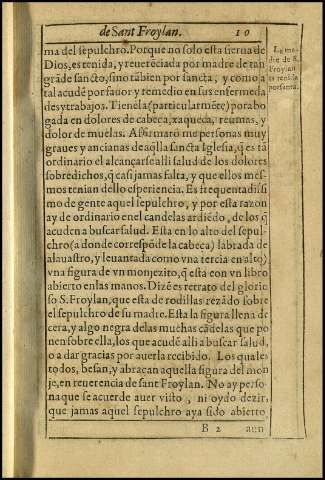 de Sant Froylan. 10
ma del sepulchro. Porque no solo esta sierua de
Dios, es tenida, y reuerēciada por madre de tan
grāde sancto, sino tābien por sancta, y como a
tal acudē por fauor y remedio en sus enfermeda
des y trabajos. Tienēla (particularmēte) por abo
gada en dolores de cabeça, xaqueca, reumas, y
dolor de muelas. Affirmarō me personas muy
graues y ancianas de aq̄lla sancta Iglesia, q̄ es tā
ordinario el alcançarse alli salud de los dolores
sobredichos, q̄ casi jamas falta, y que ellos mes-
mos tenian dello esperiencia. Es frequentadissi
mo de gente aquel sepulchro, y por esta razon
ay de ordinario en el candelas ardiēdo, de los q̄
acuden a buscar salud. Esta en lo alto del sepul-
chro (a donde correspōde la cabeça) labrada de
alauastro, y leuantada como vna tercia en alto,
vna figura de vn monjezito, q̄ esta con vn libro
abierto en las manos. Dizē es retrato del glorio
so S. Froylan, que esta de rodillas rezādo sobre
el sepulchro de su madre. Esta la figura llena de
cera, y algo negra de las muchas cādelas que po
nen sobre ella, los que acudē alli a buscar salud,
o a dar gracias por auerla recibido. Los quales
todos, besan, y abraçan aquella figura del mon
je, en reuerencia de sant Froylan. No ay perso-
na que se acuerde auer visto, ni oydo dezir,
que jamas aquel sepulchro aya sido abierto,
B 2 aun
La ma-
dre de S.
Froylan
es tenida
por santa.